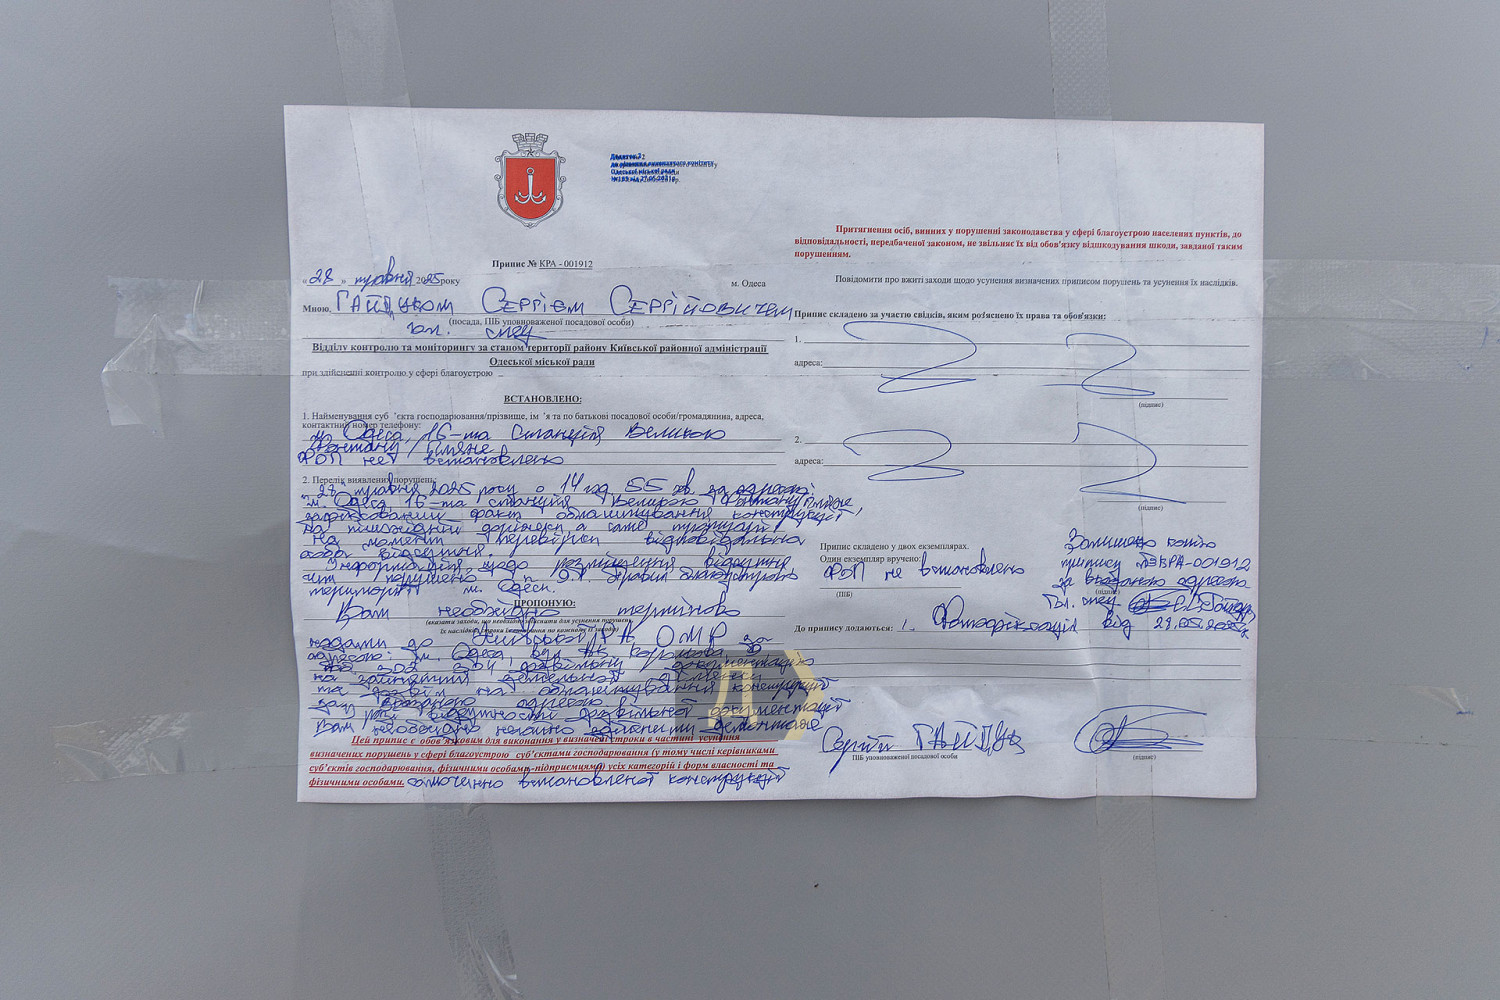 Додаток 2
до рішення виконавчого комітету
Одеської міської ради
Припис № КРА - 001912
« 28 » травня 2025 року
м. Одеса
Мною, Гайдуком Сергієм Сергійовичем
(посада, ПІБ уповноваженої посадової особи)
гол. спец
Відділу контролю та моніторингу за станом території району Київської районної адміністрації
Одеської міської ради
при здійсненні контролю у сфері благоустрою
ВСТАНОВЛЕНО:
1. Найменування суб 'єкта господарювання/прізвище, ім 'я та по батькові посадової особи/громадянина, адреса,
контактний номер телефону:
м. Одеса, 16-та станція Великого
Фонтану/пляж
ФОП не встановлено
2. Перелік виявлених порушень:
28 травня 2025 року о 14 год 55 хв. за адресою:
м. Одеса 16-та станція Великого Фонтану/пляж
зафіксований факт облаштування конструкції,
на пішохідній доріжці а саме
на момент перевірки відповідальна
особа відсутня.
Інформація щодо розміщення відсутня
чим порушено п. Правил благоустрою
території м. Одеси.
ПРОПОНУЮ:
Вам необхідно терміново
(вказати заходи, що необхідно здійснити для усунення порушень,
надати до Київської РА ОМР за
адресою: м. Одеса, вул. Ак. Корольова, 9
дозвільну документацію
на зайняття земельної ділянки
та дозвіл на облаштування конструкції
за вказаною адресою
у разі відсутності дозвільної документації
Вам необхідно негайно демонтаж
Цей припис є обов'язковим для виконання у визначені строки в частині усунення
визначених порушень у сфері благоустрою суб'єктами господарювання (у тому числі керівниками
суб'єктів господарювання, фізичними особами-підприємцями) усіх категорій і форм власності та
фізичними особами.
самочинно встановленої конструкції
Притягнення осіб, винних у порушенні законодавства у сфері благоустрою населених пунктів, до
відповідальності, передбаченої законом, не звільняє їх від обов'язку відшкодування шкоди, завданої таким
порушенням.
Повідомити про вжиті заходи щодо усунення визначених приписом порушень та усунення їх наслідків.
Припис складено за участю свідків, яким роз'яснено їх права та обов'язки:
1.
адреса:
(підпис)
2.
адреса:
(підпис)
Припис складено у двох екземплярах.
Один екземпляр вручено:
ФОП не встановлено
(ПІБ)
Залишено копію
припису №КРА-001912
за вказаною адресою
(підпис)
Гол. спец.
До припису додаються: 1. Фотофіксація від 28.05.2025р.
Сергій Гайдук
ПІБ уповноваженої посадової особи
(підпис)